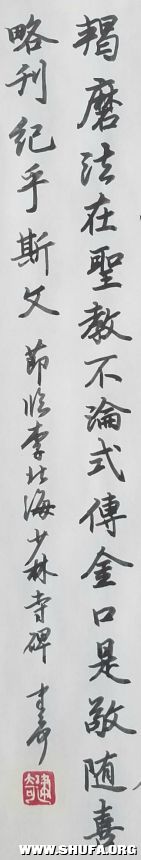 羯磨法在聖教不淪式傳金口是敬随喜
略刊紀乎斯文 節临李北海少林寺碑
WWW.SHUFA.ORG